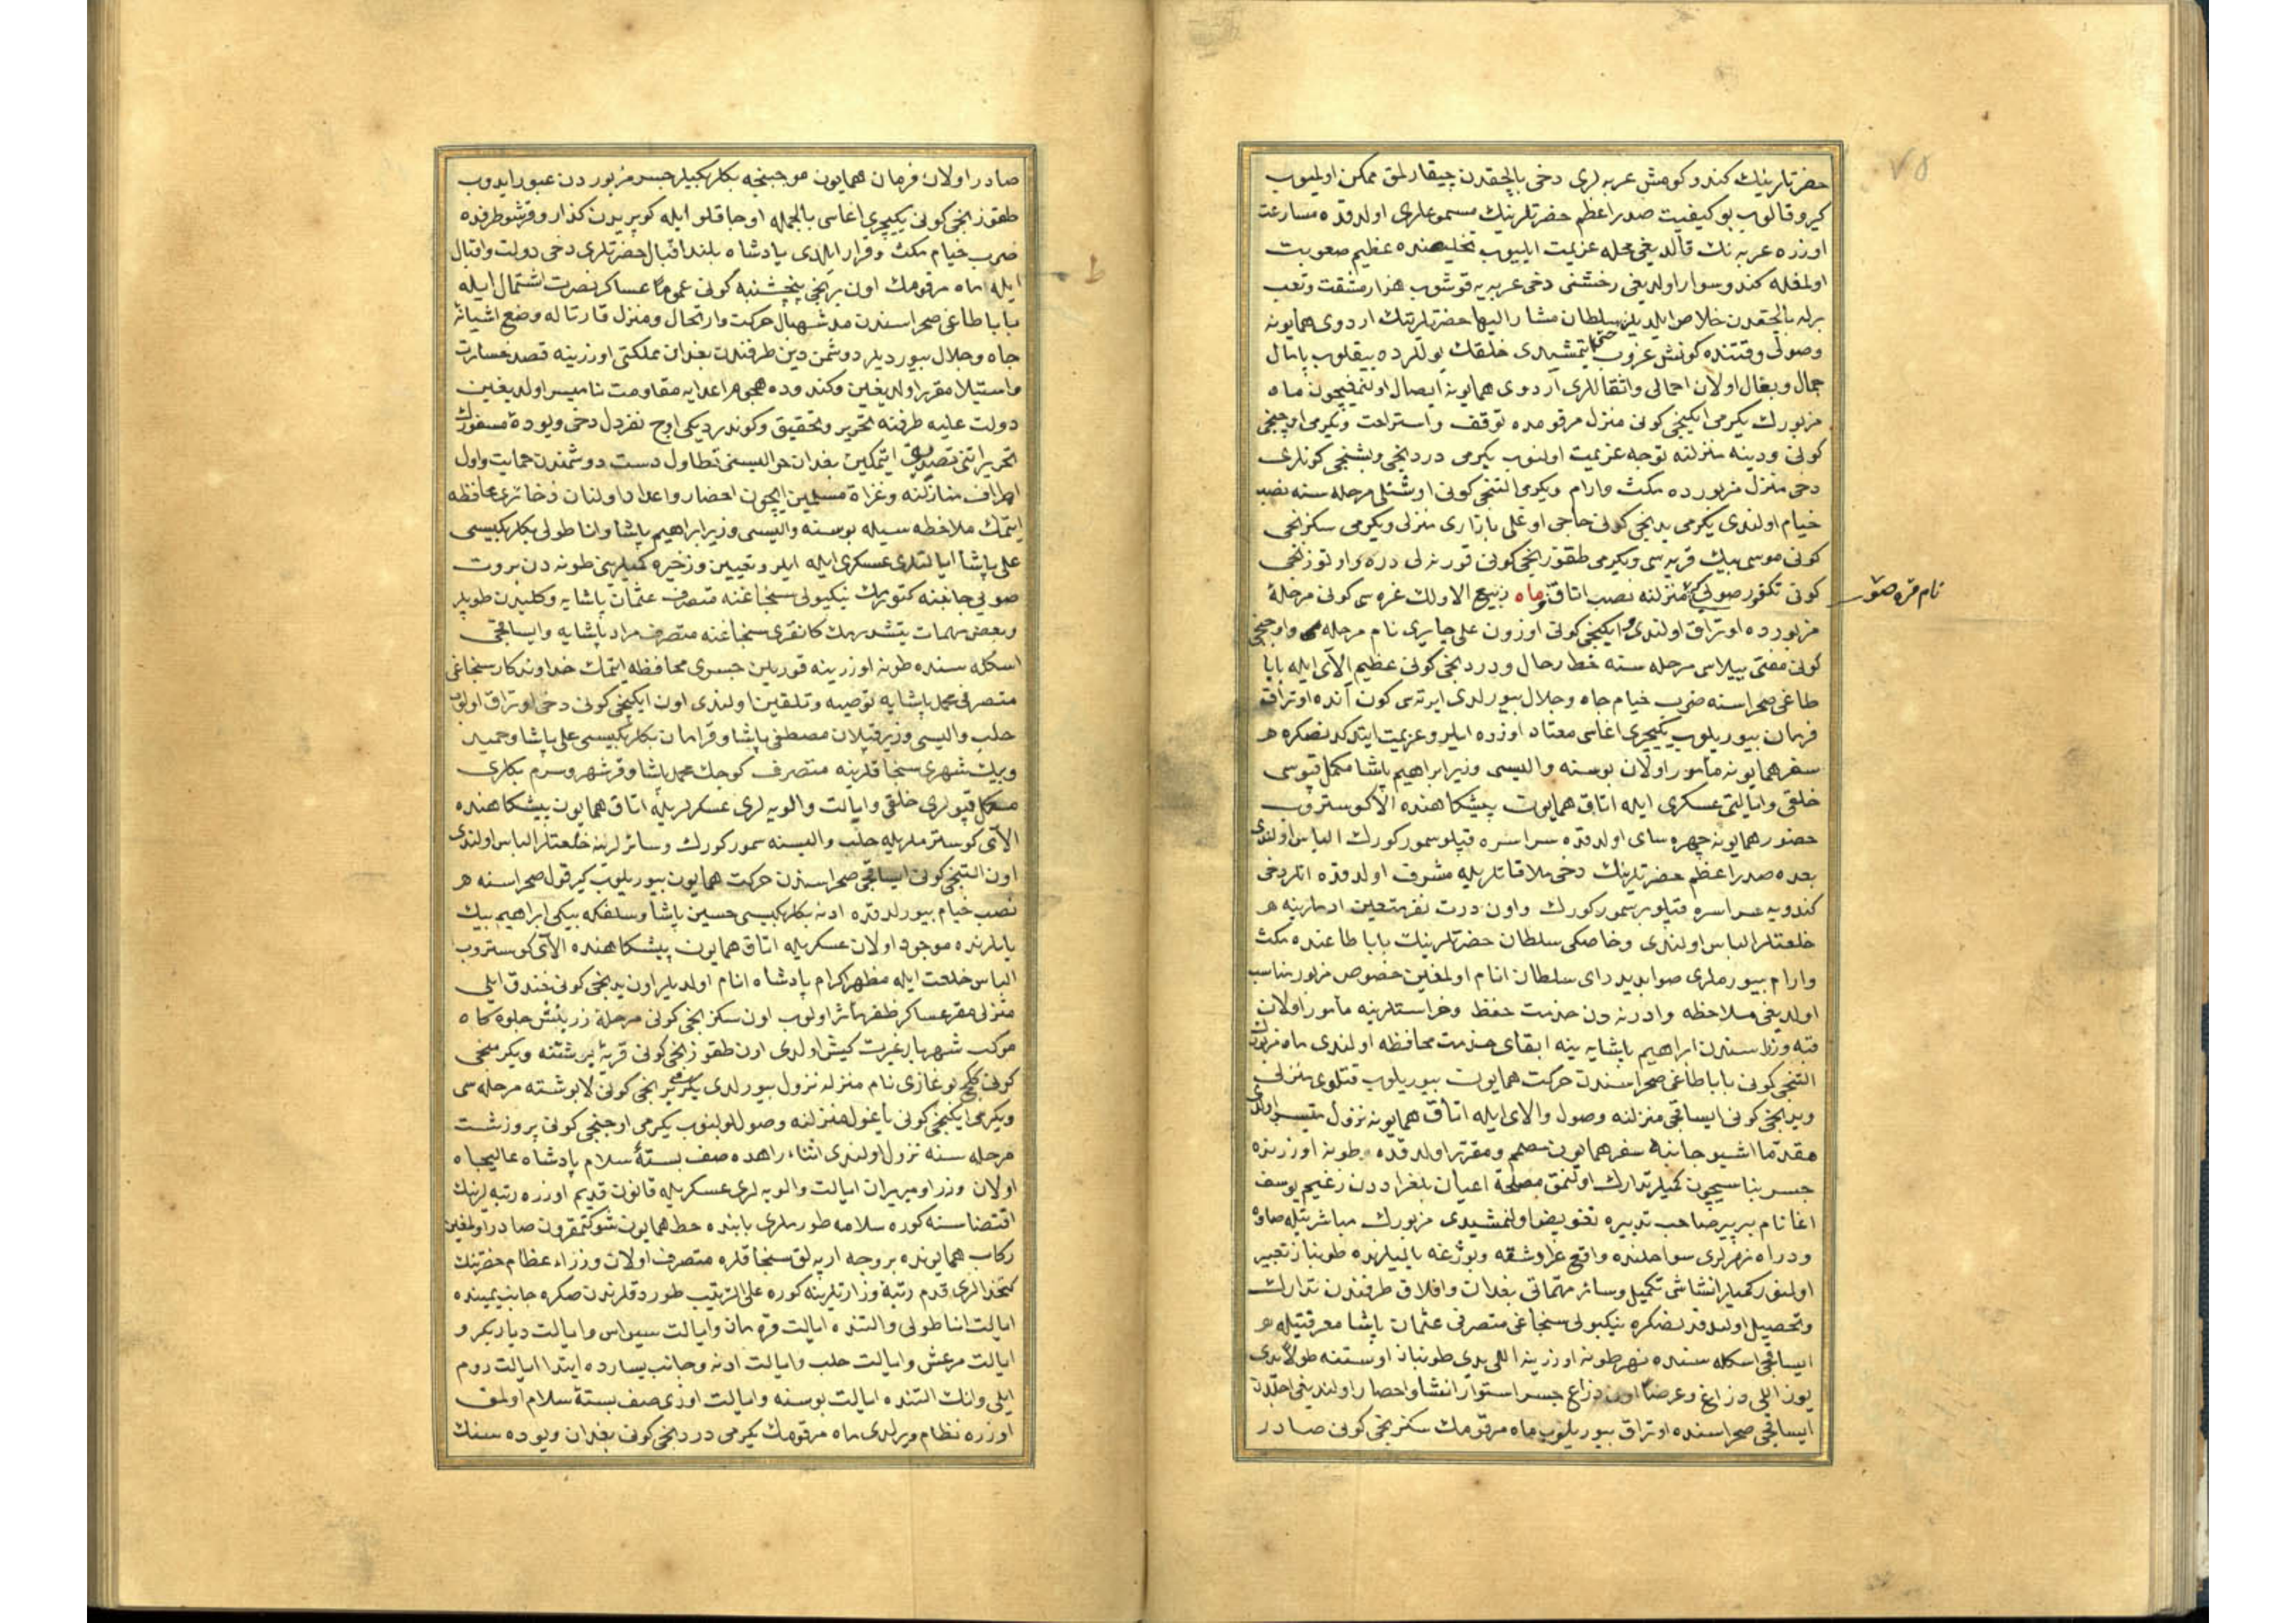 ٧٥
حضرتلرینك كندو كومش عربه لری دخی بالچقدن چیقارلمق ممكن اولمیوب
كیرو قالوب بو كیفیت صدر اعظم حضرتلرینك مسموعلری اولدقده مسارعت
اوزره عربه نك قالدیغی محله عزیمت ایلیوب تخلیصنده عظیم صعوبت
اولمغله كندو سوار اولدیغی رخشنی دخی عربه یه قوشوب هزار مشقت و تعب
برله بالچقدن خلاص ایلدیلر سلطان مشار الیها حضرتلرینك اردوی همایونه
وصولی وقتنده كونش غروب ایتمشیدی خلقك یوللرده ییقلوب پایمال
جمال و بغال اولان احمالی و اثقاللری اردوی همایونه ایصال اولنمغیچون ماه
مزبورك یكرمی ایكینجی كونی منزل مرقومده توقف و استراحت و یكرمی اوچنجی
كونی ودینه منزلنه توجه عزیمت اولنوب یكرمی دردنجی و بشنجی كونلری
دخی منزل مزبورده مكث و ارام و یكرمی التنجی كونی اوشنلی مرحله سنه نصب
خیام اولندی یكرمی یدنجی كونی حاجی اوغلی بازاری منزلی و یكرمی سكزنجی
كونی موسی بیك قریه سی و یكرمی طقوزنجی كونی قورنه لی دره و اوتوزنجی
كونی تكفور صولی منزلنه نصب اتاق و ماه ربیع الاولك غره سی كونی مرحلهٔ
نام قره صو
مزبورده اوتراق اولندی و ایكینجی كونی اوزون علی چایری نام مرحله و اوچنجی
كونی مفتی ییلاسی مرحله سنه حط رحال و دردنجی كونی عظیم الای ایله بابا
طاغی صحراسنه ضرب خیام جاه و جلال بیورلدی ایرته سی كون انده اوتراق
فرمان بیوریلوب یكیچری اغاسی معتاد اوزره ایلرو عزیمت ایتدكدنصكره
سفر همایونه مأمور اولان بوسنه والیسی وزیر ابراهیم پاشا مكمل قپوسی
خلقی و ایالتی عسكری ایله اتاق همایون پیشكاهنده الای كوستروب
حضور همایونه چهره سای اولدقده سراسره قپلو سمور كورك الباس اولندی
بعده صدر اعظم حضرتلرینك دخی ملاقاتلریله مشرف اولدقده انلر دخی
كندویه سراسره قپلو بر سمور كورك و اون درت نفر متعین ادملرینه
خلعتلر الباس اولندی و خاصكی سلطان حضرتلرینك بابا طاغنده مكث
و ارام بیورملری صوابدید رای سلطان انام اولمغین خصوص مزبور مناسب
اولدیغی ملاحظه و ادرنه دن خدمت حفظ و حراستلرینه مأمور اولان
قبه وزراسندن ابراهیم پاشایه ینه ابقای خدمت محافظه اولندی ماه مزبورك
التنجی كونی بابا طاغی صحراسندن حركت همایون بیوریلوب قتلوی منزلی
و یدنجی كونی ایساقجی منزلنه وصول و الای ایله اتاق همایونه نزول میسر اولدی
مقدما اشبو جانبه سفر همایون مصمم و مقرر اولدقده طونه اوزرنده
جسر بناسیچون كمیلر تدارك اولنمق مصلحة اعیان بلغراددن زعیم یوسف
اغا نام بر پیر صاحب تدبیره تفویض اولنمشیدی مزبورك مباشرتیله صاوه
و دراوه نهرلری سواحلنده واقع غراوشقه و بوزغه یالیلرنده طونباز تعبیر
اولنور كمیلر انشاسی تكمیل و سائر مهماتی بغدان و افلاق طرفندن تدارك
و تحصیل اولندقدنصكره نیكبولی سنجاغی متصرفی عثمان پاشا معرفتیله
ایساقجی اسكله سنده نهر طونه اوزرینه اللی یدی طونباز اوستنه طولاً یدی
یوز اللی ذراع و عرضاً اون ذراع جسر استوار انشا و احضار اولندیغی اجلدن
ایساقجی صحراسنده اوتراق بیوریلوب ماه مرقومك سكزنجی كونی صادر
صادر اولان فرمان همایون موجبنجه بكلربكیلر جسر مزبوردن عبور ایدوب
طقوزنجی كونی یكیچری اغاسی بالجمله اوجاقلو ایله كوپریدن كذار و قرشو طرفده
ضرب خیام مكث و قرار ایلدی پادشاه بلند اقبال حضرتلری دخی دولت و اقبال
ایله ماه مرقومك اون برنجی پنجشنبه كونی عموماً عساكر نصرت اشتمال ایله
بابا طاغی صحراسندن مد شهبال حركت و ارتحال و منزل قارتاله وضع اشیانهٔ
جاه و جلال بیوردیلر دوشمن دین طرفندن بغدان مملكتی اوزرینه قصد خسارت
و استیلا مقرر اولدیغین و كندوده هجوم اعدایه مقاومت نامیسر اولدیغین
دولت علیه طرفنه تحریر و تحقیق و كوندردیكی اوچ نفر دل دخی ویوده مسفورك
تحریراتنی تصدیق ایتمكین بغدان حوالیسنی تطاول دست دوشمندن حمایت و اول
اطراف منازلنه و غزاة مسلمین ایچون احضار و اعداد اولنان ذخائری محافظه
ایتمك ملاحظه سیله بوسنه والیسی وزیر ابراهیم پاشا و اناطولی بكلربكیسی
علی پاشا ایالتلری عسكری ایله ایلرو تعیین و ذخیره كمیلرینی طونه دن بروت
صویی جانبنه كتورمك نیكبولی سنجاغنه متصرف عثمان پاشایه و كلیدن طوپلر
و بعض مهمات یتشدرمك كانقری سنجاغنه متصرف مراد پاشایه و ایساقجی
اسكله سنده طونه اوزرینه قوریلن جسری محافظه ایتمك خداوندكار سنجاغی
متصرفی محمد پاشایه توصیه و تلقین اولندی اون ایكینجی كونی دخی اوتراق اولنوب
حلب والیسی وزیر قپلان مصطفی پاشا و قرامان بكلربكیسی علی پاشا و حمید
و بیك شهری سنجاقلرینه متصرف كوچك محمد پاشا و قرشهر و سرم بكلری
مكمل قپولری خلقی و ایالت و الویه لری عسكرلریله اتاق همایون پیشكاهنده
الای كوسترملریله حلب والیسنه سمور كورك و سائرلرینه خلعتلر الباس اولندی
اون التنجی كونی ایساقجی صحراسندن حركت همایون بیوریلوب كیرقول صحراسنه
نصب خیام بیورلدقده ادنه بكلربكیسی حسین پاشا و سلفكه بیكی ابراهیم بیك
یانلرنده موجود اولان عسكریله اتاق همایون پیشكاهنده الای كوستروب
الباس خلعت ایله مظهر اكرام پادشاه انام اولدیلر اون یدنجی كونی خندق ایلی
منزلی مقر عساكر ظفر مأثر اولوب اون سكزنجی كونی مرحلهٔ زرینش جلوه كاه
موكب شهریار غیرت كیش اولدی اون طقوزنجی كونی قریهٔ پرشتنه و یكرمنجی
كونی كچ بوغازی نام منزله نزول بیورلدی یكرمی برنجی كونی لابوشنه مرحله سی
و یكرمی ایكینجی كونی یاغول منزلنه وصول اولنوب یكرمی اوچنجی كونی پروزشت
مرحله سنه نزول اولندی اثناء راهده صف بستهٔ سلام پادشاه عالیجاه
اولان وزرا و میرمیران ایالت و الویه لری عسكریله قانون قدیم اوزره رتبه لرینك
اقتضاسنه كوره سلامه طورملری بابنده خط همایون شوكتمقرون صادر اولمغین
ركاب همایونده بروجه ارپه لق سنجاقلره متصرف اولان وزراء عظام حضرتلرینك
كتخدالری قدم رتبهٔ وزارتلرینه كوره علی الترتیب طوردقلرندن صكره جانب یمینده
ایالت اناطولی و التنده ایالت قرمان و ایالت سیواس و ایالت دیاربكر و
ایالت مرعش و ایالت حلب و ایالت ادنه و جانب یسارده ابتدا ایالت روم
ایلی و انك التنده ایالت بوسنه و ایالت اوزی صف بستهٔ سلام اولمق
اوزره نظام ویرلدی ماه مرقومك یكرمی دردنجی كونی بغدان ویوده سنك